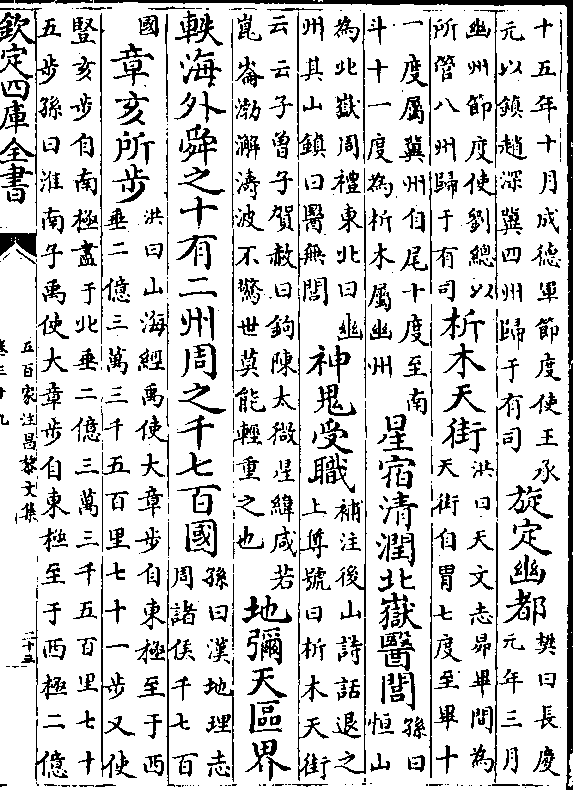 十五年十月成德軍節度使王承
元以鎮趙深冀四州歸于有司
旋定幽都
樊曰長慶
元年三月
幽州節度使劉總以
所管八州歸于有司
析木天街
洪曰天文志昴畢間為
天街自胃七度至畢十
一度屬冀州自尾十度至南
斗十一度為析木屬幽州
星宿清潤北嶽醫閭
孫曰
恒山
為北嶽周禮東北曰幽
州其山鎮曰醫無閭
神鬼受職
補注後山詩話退之
上尊號曰析木天街
云云子曽子賀赦曰鉤陳太微星緯咸若
崑崙渤澥濤波不驚世莫能輕重之也
地彌天區界
軼海外舜之十有二州周之千七百國
孫曰漢地理志
周諸侯千七百
國
章亥所步
洪曰山海經禹使大章步自東極至于西
垂二億三萬三千五百里七十一步又使
豎亥步自南極盡于北垂二億三萬三千五百里七十
五步孫曰淮南子禹使大章步自東極至于西極二億
欽定四庫全書
五百家注昌黎文集
卷三十九
二十五